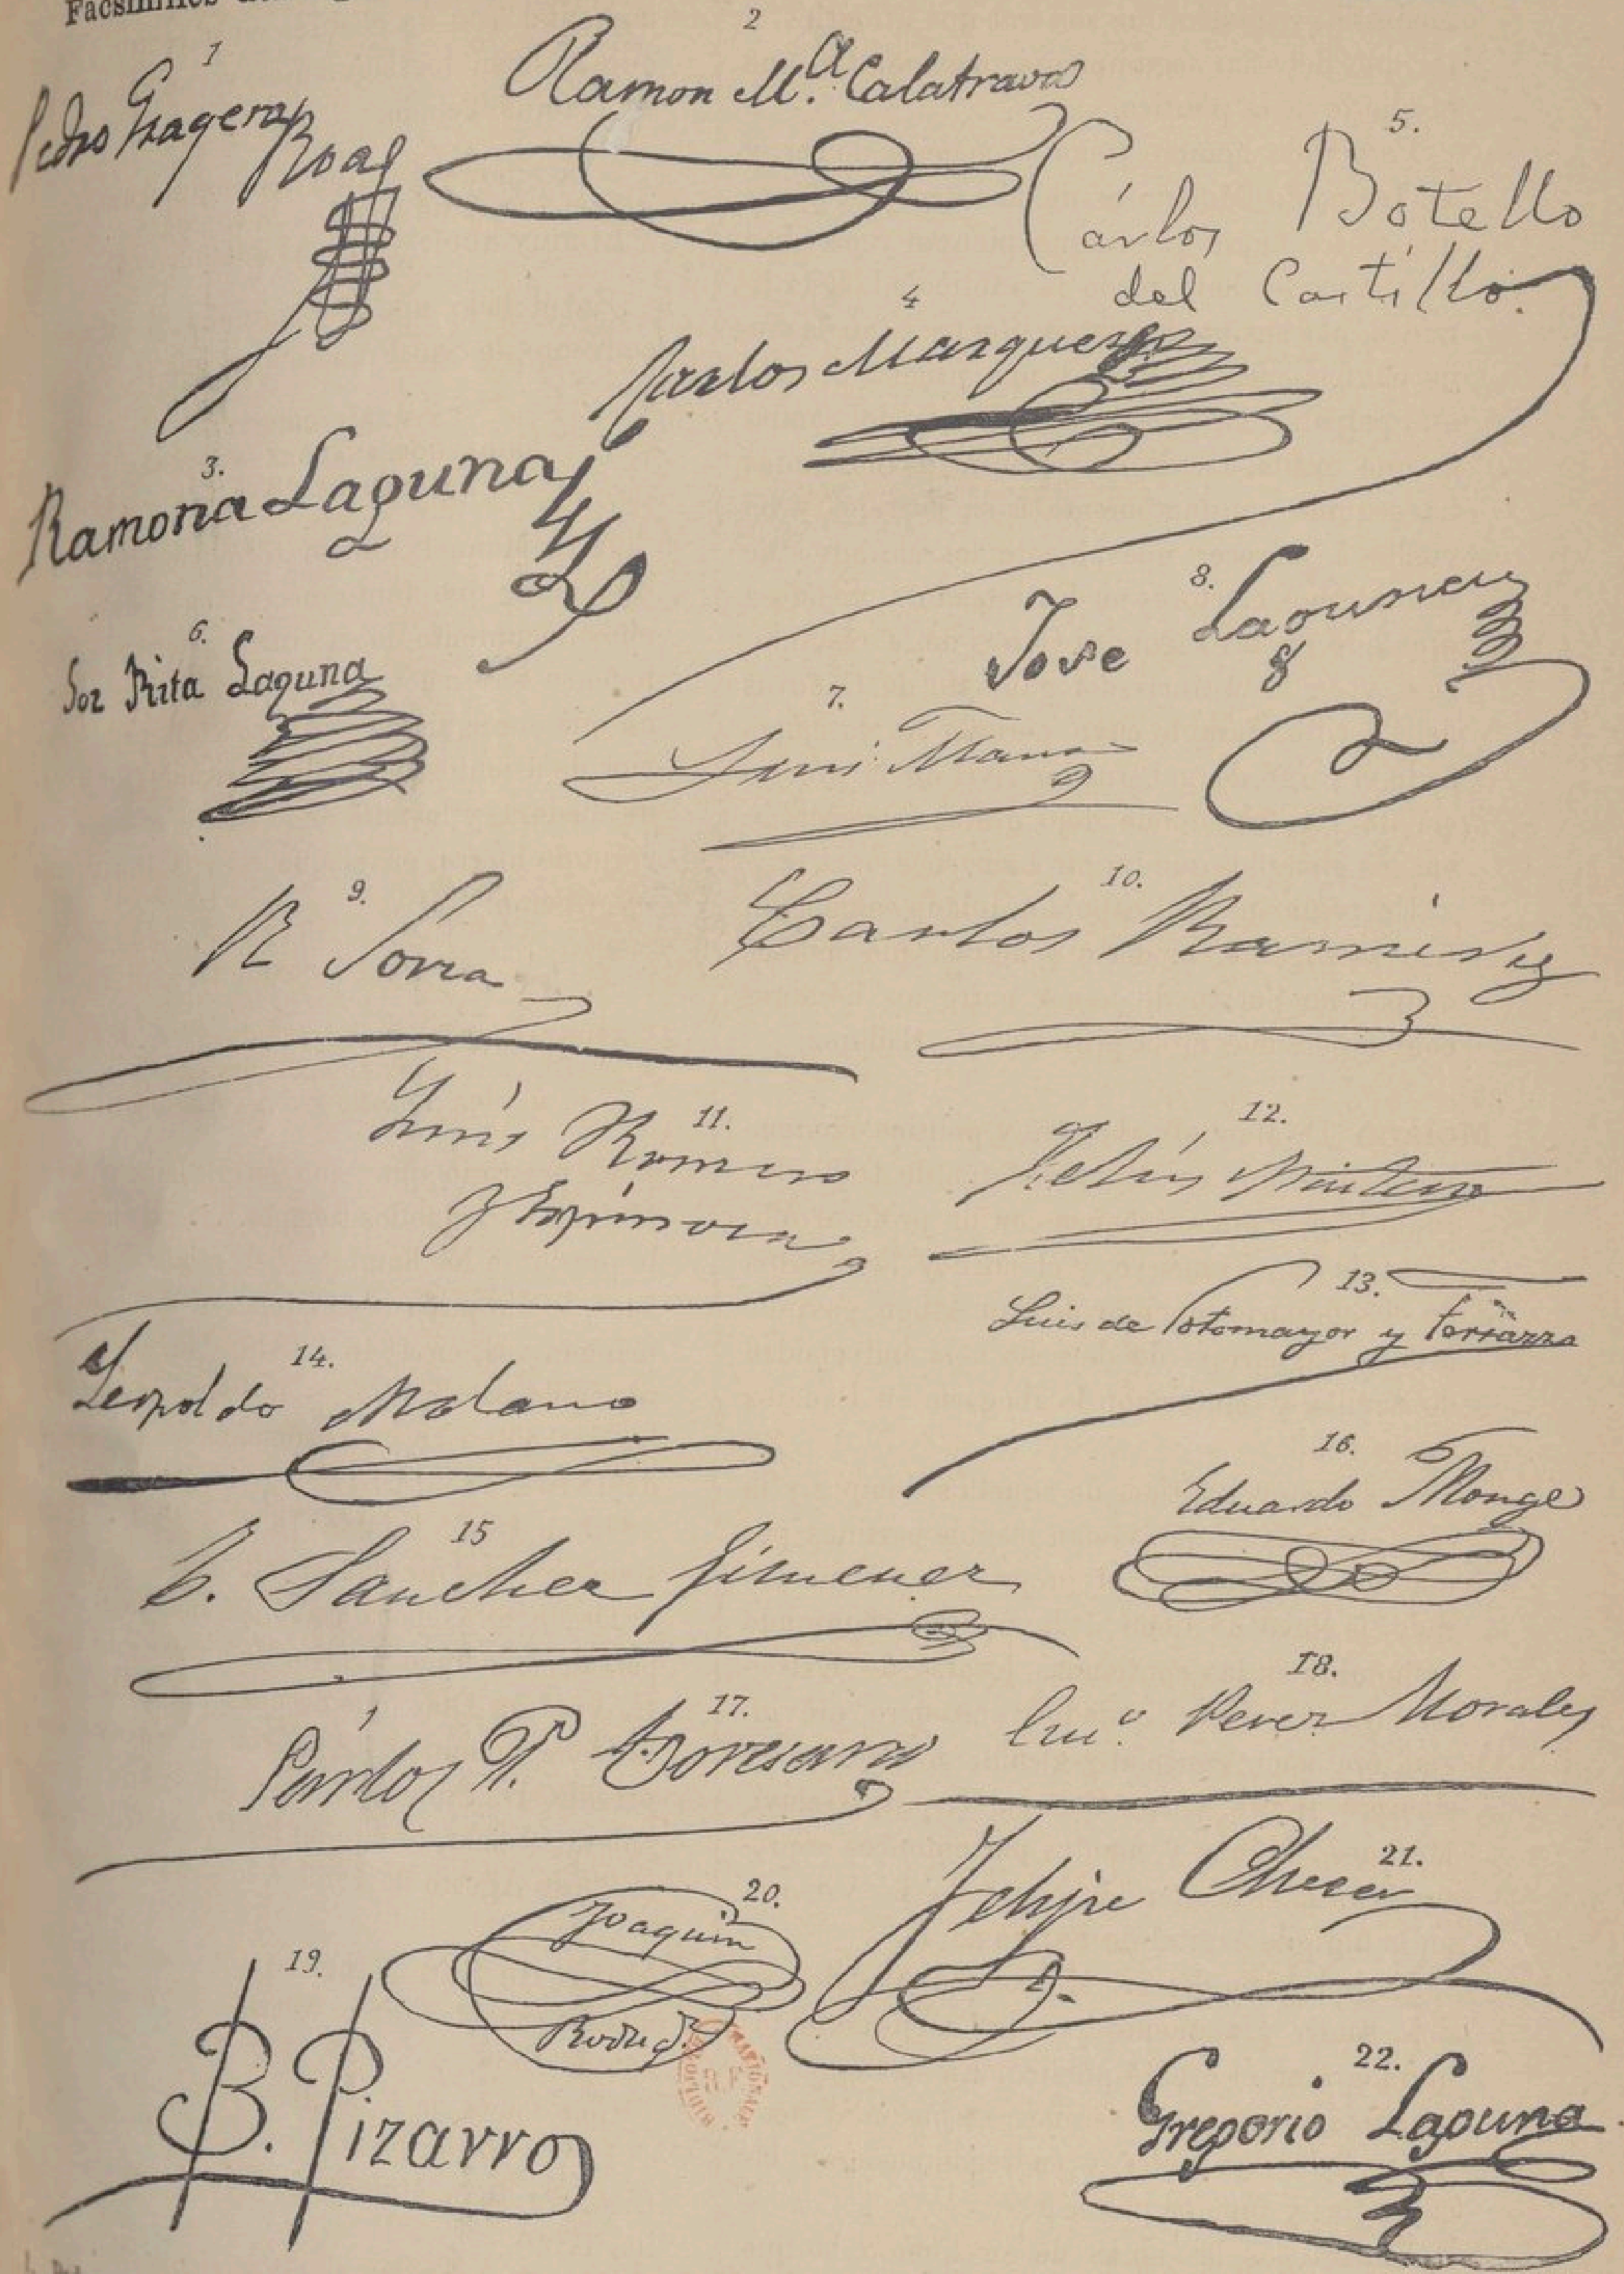 Facsímiles
1
Pedro Gragera
Roas
2
Ramon M.ª Calatrava
5.
Cárlos Botello
del Castillo.
4
Carlos Marquez
3.
Ramona Laguna
6.
Sor Rita Laguna
8.
Jose Laguna
7.
9.
R Sorra
10.
Carlos Ramirez
11.
Luis Romero
y Espinosa
12.
13.
Luis de Sotomayor y Terrazza
14.
Leopoldo Molano
16.
Eduardo Monge
15
E. Sanchez Jimenez
17.
Cárlos P.
18.
Perez Morales
20.
Joaquin
Rodrig.z
21.
Felipe Checa
19.
B. Pizarro
22.
Gregorio Laguna